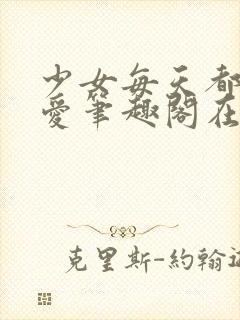 少女每天都
爱笔趣阁在
克里斯-約翰遜